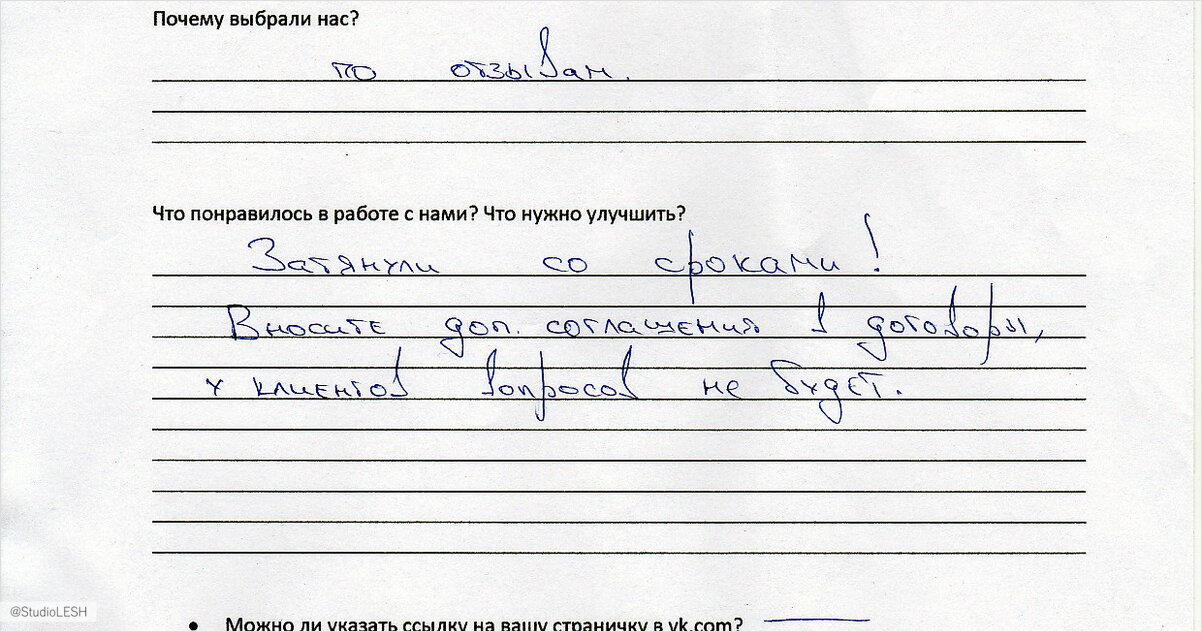 Почему выбрали нас?
по отзывам.
Что понравилось в работе с нами? Что нужно улучшить?
Затянули со сроками!
Вносите доп. соглашения в договоры,
у клиентов вопросов не будет.
• Можно ли указать ссылку на вашу страничку в vk.com?
@StudioLESH